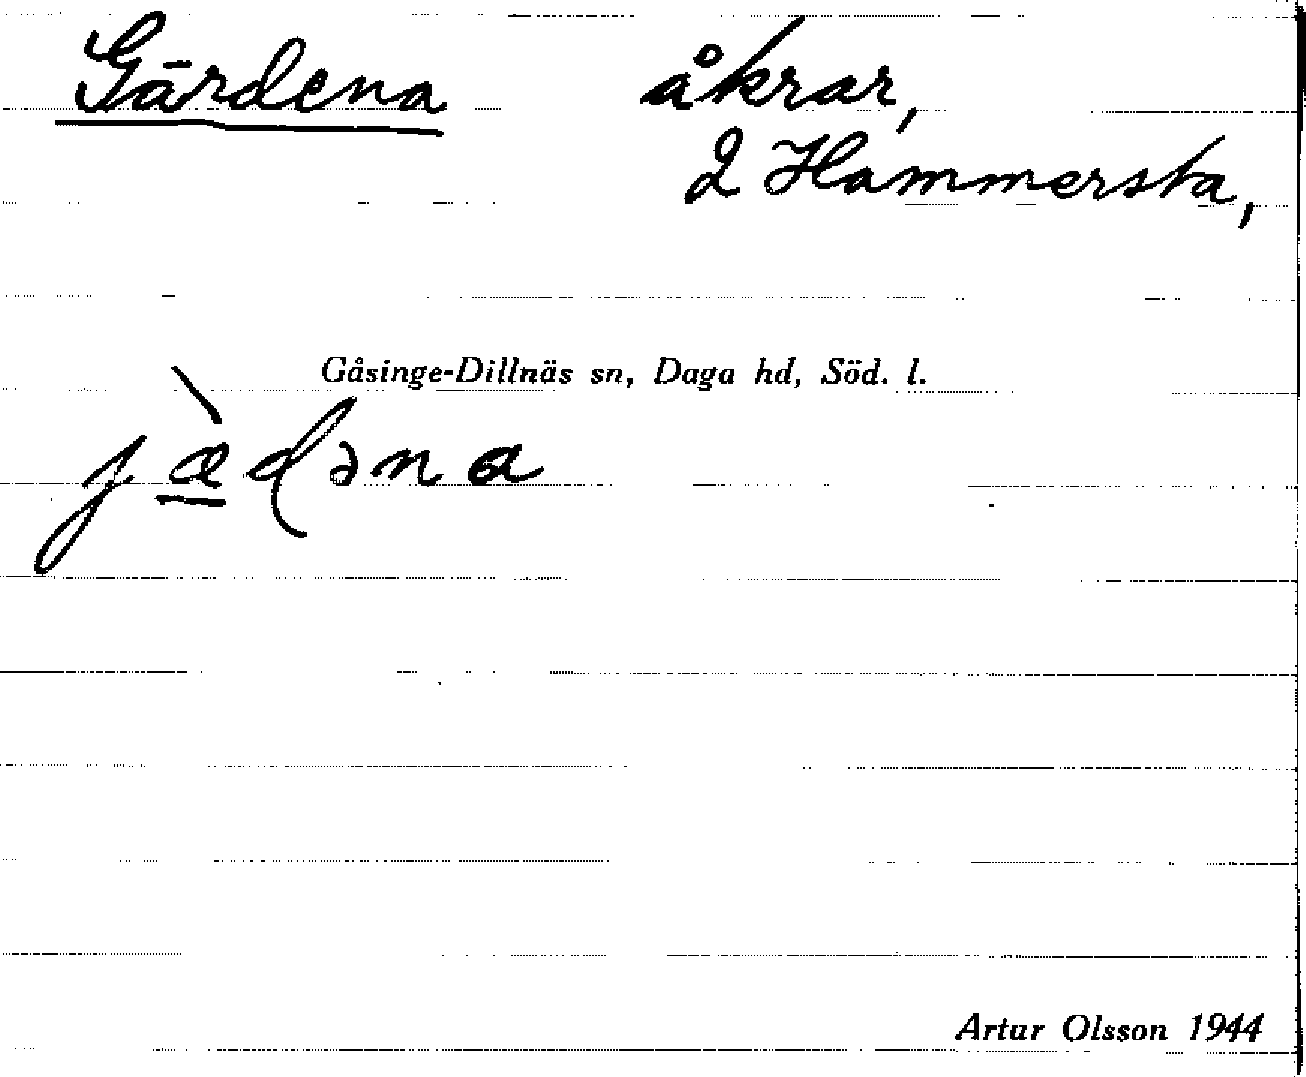 Gärdena åkrar,
2 Hammersta,
Gåsinge-Dillnäs sn, Daga hd, Söd. l.
jæ̀ɖəna
Artur Olsson 1944